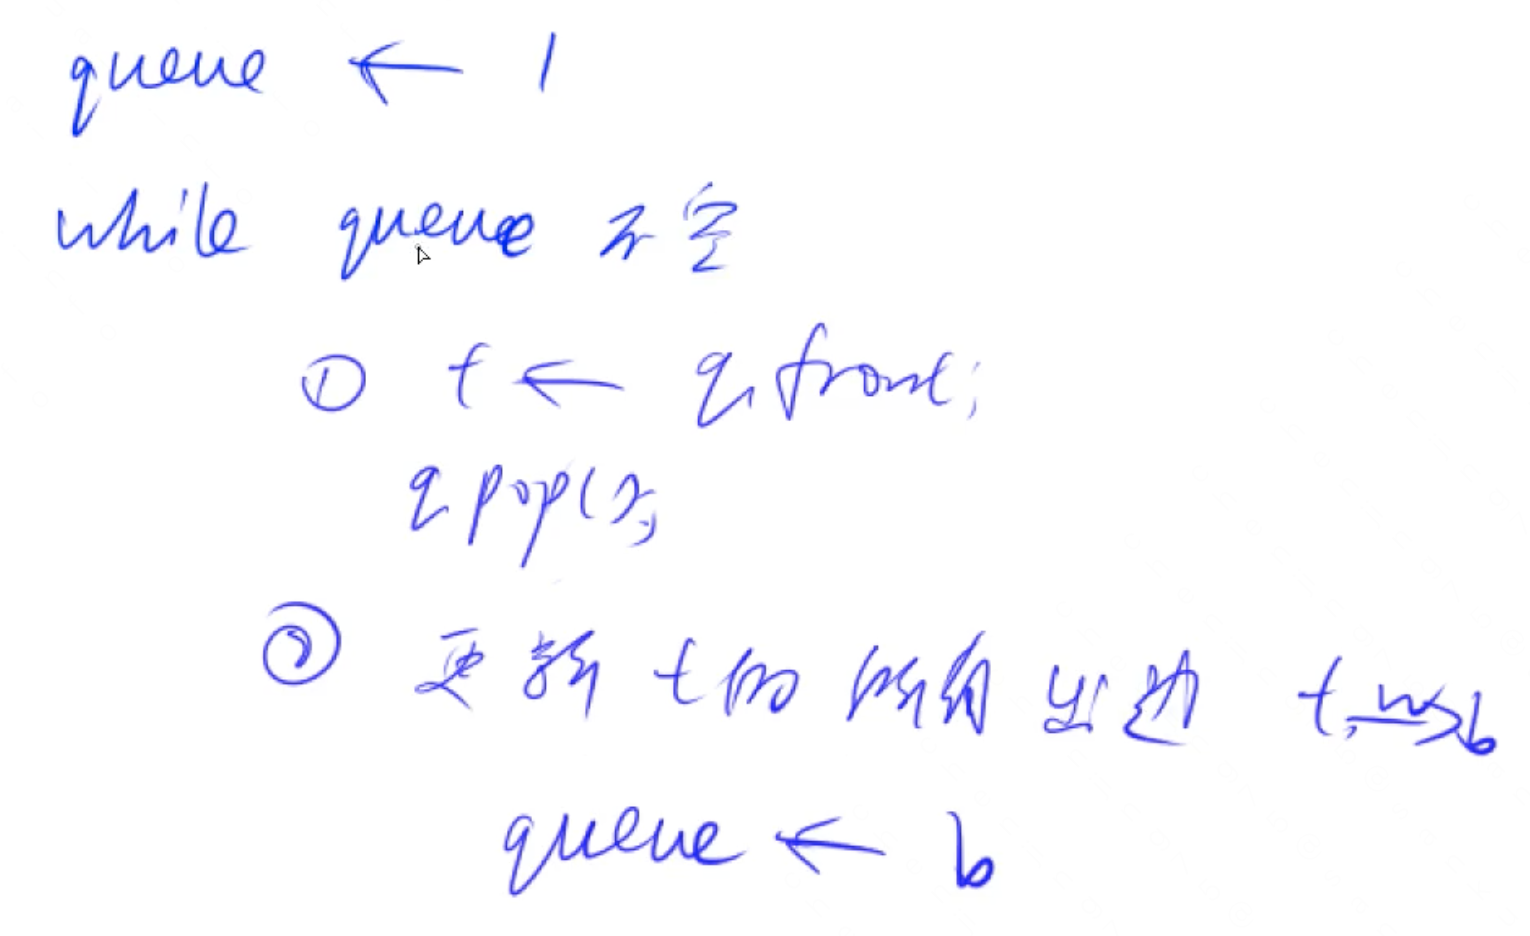 queue ← 1
while queue 不空
① t ← q.front;
q.pop();
② 更新 t的 所有 出边 t, w→b
queue ← b